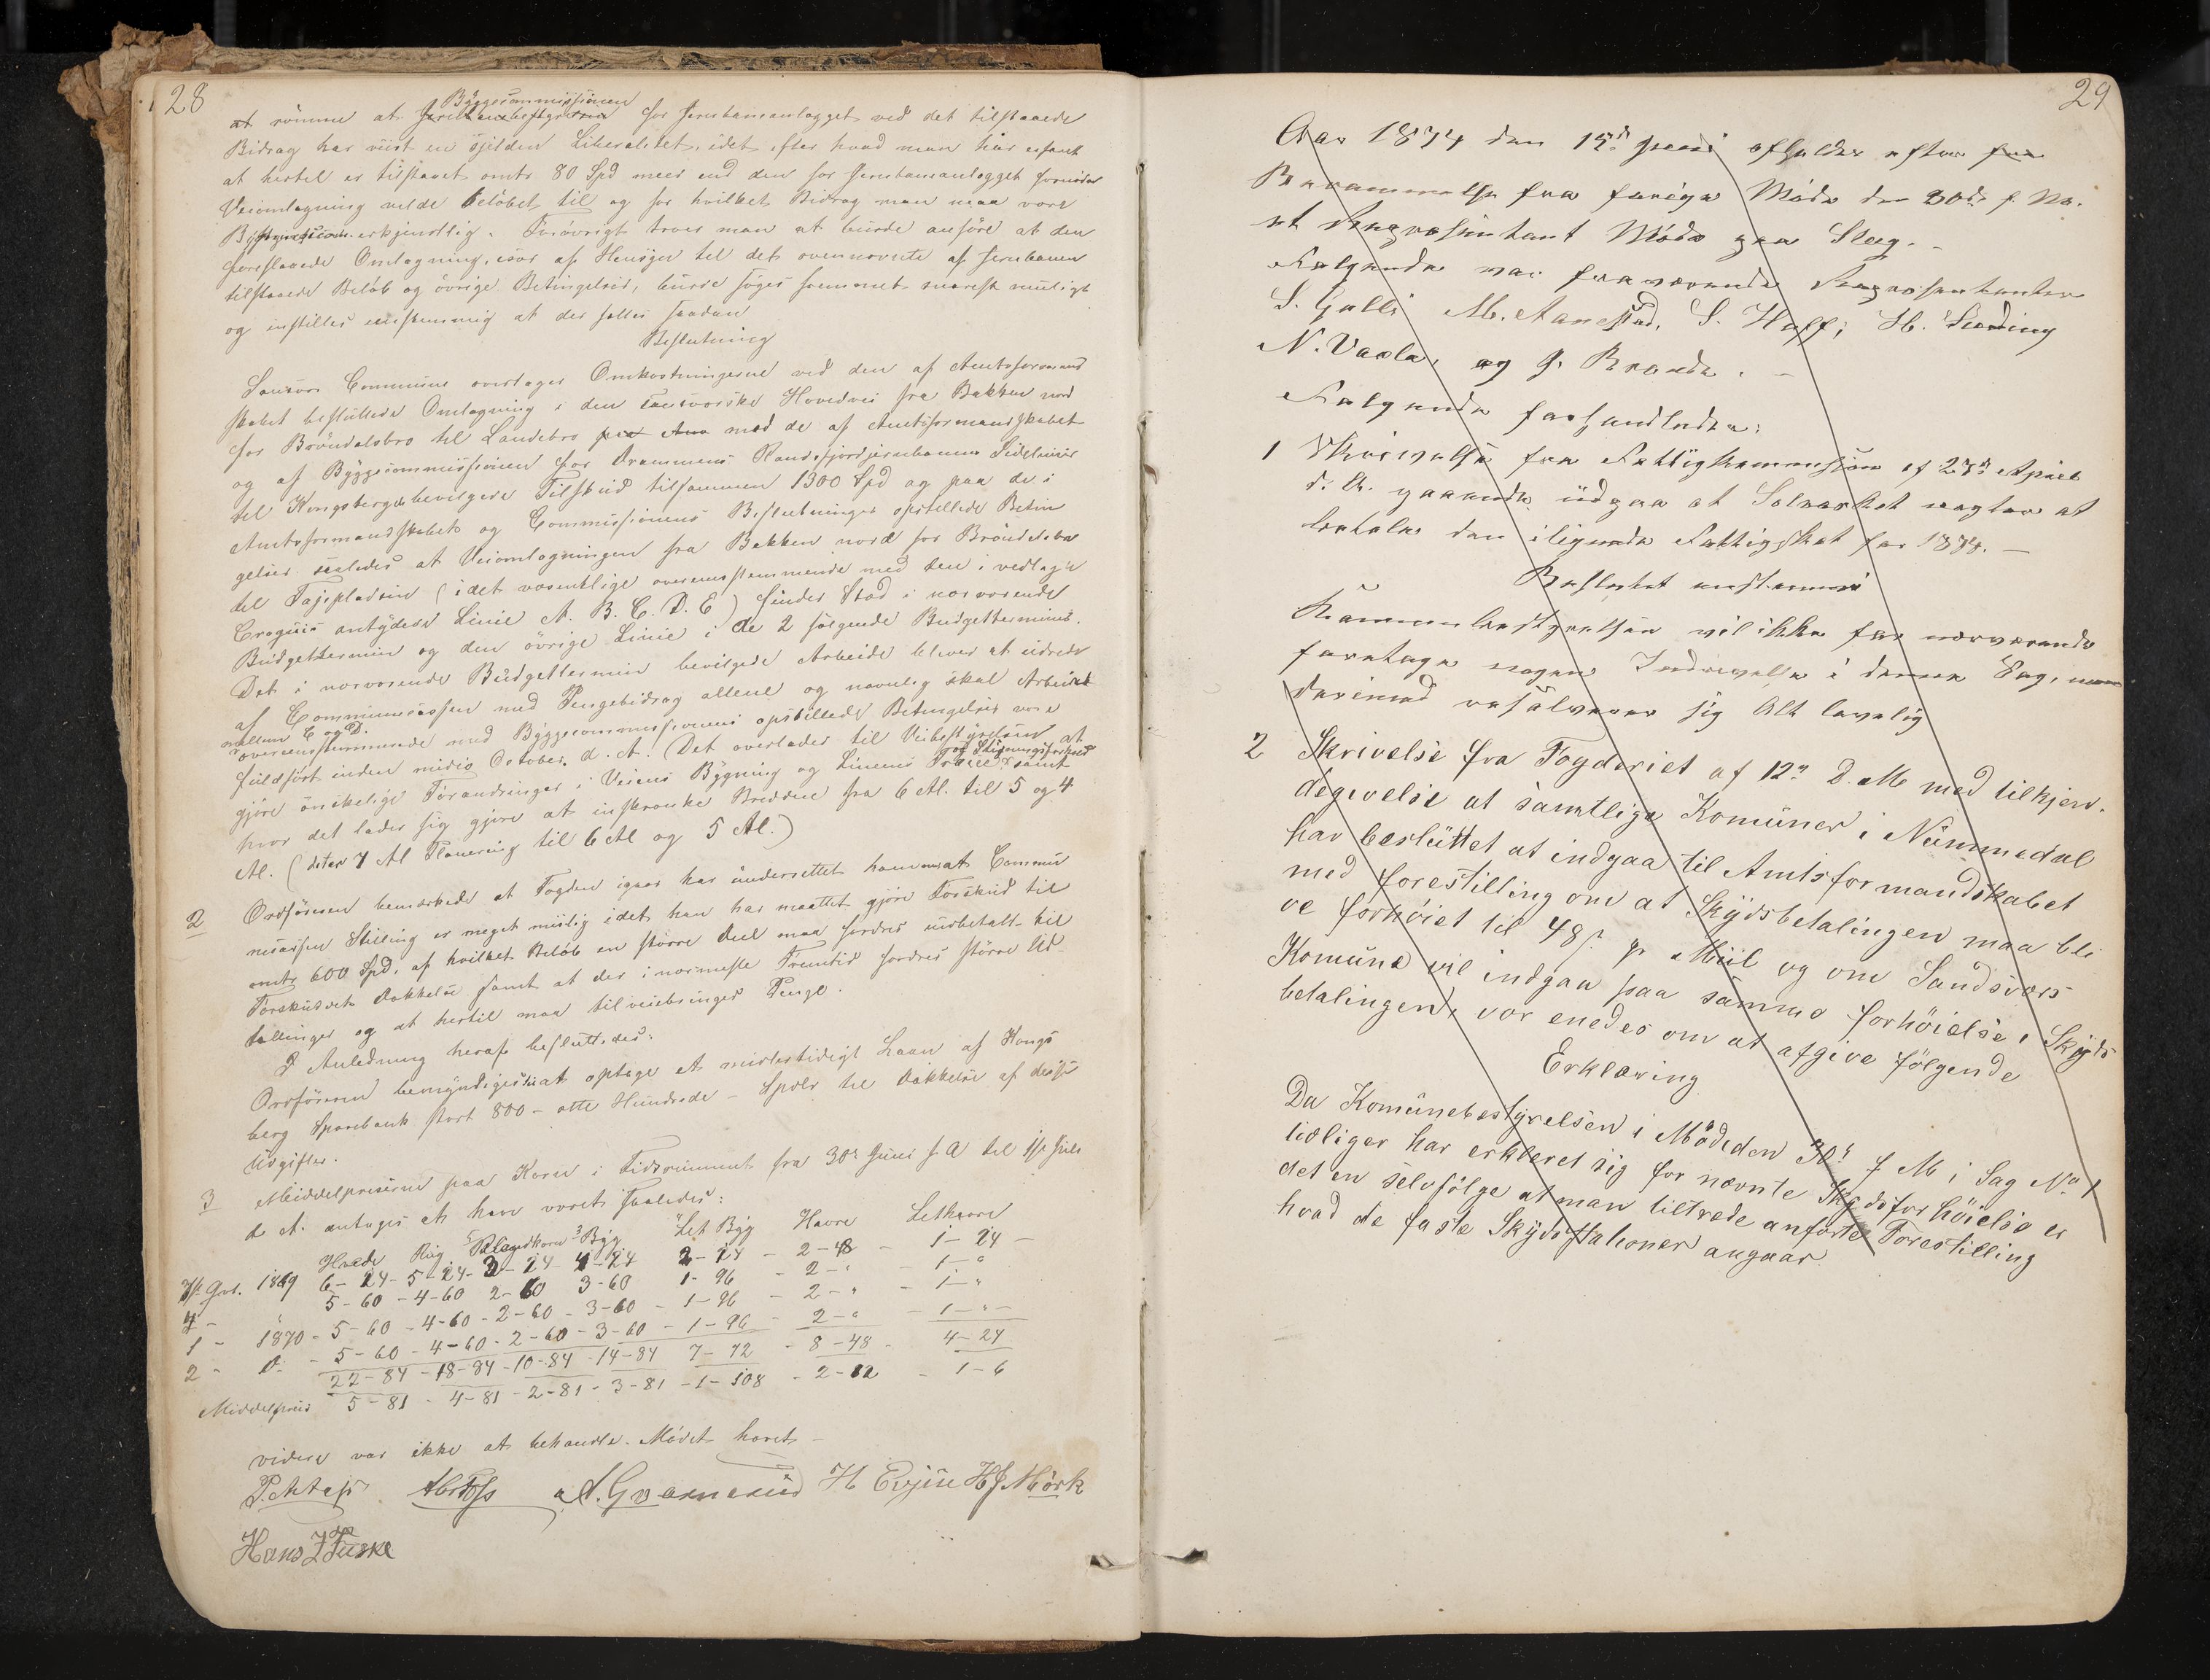 28
Byggecommissionen
at römme at for Jernbaneanlægget ved det tilstaaede
Bidrag har viist en sjelden Liberalitet, idet efter hvad man har erfaret
at hertil er tilstaaet omtr 80 Spd meer end den for Jernbaneanlægget fornödne
Veiomlægning vilde beløbet til og for hvilket Bidrag man maa være
erkjendtlig. Forövrigt troer man at burde anföre at den
foreslaaede Omlægning, især af Hensyn til det ovennævnte af Jernbanen
tilstaaede Beløb og övrige Betingelser, burde søges fremmet snarest muligt
og instilles eenstemmig at der fattes saadan
Beslutning
Sandsvær Commune overtager Omkostningerne ved den af Amtsformand
skabet besluttede Omlægning i den sandsværske Hovedvei fra Bakken nord
for Bröndalsbro til Landebro med de af Amtsformandskabet
og af Byggecommissionen for Drammens Randsfjordjernbanens Sidelinie
til Kongsberg bevilgede Tilskud tilsammen 1300 Spd og paa de i
Amtsformandskabets og Commissionens Beslutninger opstillede Betin
gelser saaledes at Veiomlægningen fra Bakken nord for Bröndalsbro
til Tajepladsen (idet væsentlige overeensstemmende med den i vedlagte
Croquis antydede Linie A. B. C. D. E) finder Sted i nærværende
Budgettermin og den övrige Linie i de 2 følgende Budgetterminer.
Det i nærværende Budgettermin bevilgede Arbeide bliver at udrede
af Communecassen med Pengebidrag allene og navnlig skal Arbeidet
mellem C og D.
overeensstemmende med Byggecommissionens opstillede Betingelser være
fuldført inden midio October d. A. (Det overlades til Veibestyrelsen at
og Stigningsforhold
gjøre önskelige Forandringer i Veiens Bygning og Liniens Tracee samt
hvor det lader sig gjøre at inskrænke Bredden fra 6 Al. til 5 og 4
Al. (ditev 7 Al Planering til 6 Al og 5 Al.)
2 Ordföreren bemærkede at Fogden igaar har underrettet ham om at Commu
necassen Stilling er meget mislig idet han har maattet gjøre Forskud til
omtr 600 Spd, af hvilket Beløb en større Deel maa fordres udbetalt til
Forskudets Dækkelse samt at der i nærmeste Fremtid fordres större Ud
tællinger og at hertil maa tilveiebringes Penge.
I Anledning heraf besluttedes:
Ordföreren bemyndiges til at optage et midlertidigt Laan af Kongs
berg Sparebank stort 800 - otte Hundrede - Spdlr til Dækkelse af disse
Udgifter.
3 Middelpriserne paa Korn i Tidsrummet fra 30te Juni f. A til 1ste Juli
d. A. antages at have været saaledes:
Hvede Rug Blandkorn Byg Let Byg Havre Lethavre
3d Qvt. 1869 6-24-5-24-3-24 4-24 2-24 - 2-48 - 1-24 -
4 - 5-60 - 4-60 2-60 3-60 1-96 - 2-" - 1-"
1 - 1870 - 5-60 - 4-60 - 2-60 - 3-60 - 1-96 - 2-" - 1-"
2 - D - 5-60 - 4-60 - 2-60 - 3-60 - 1-96 - 2-" - 1-"-
22-84 - 18-84 - 10-84 - 14-84 7-72 - 8-48 - 4-24
Middelpriis 5-81 - 4-81 - 2-81 - 3-81 - 1-108 - 2-12 - 1-6
videre var ikke at behandle. Mödet hævet -
H Evju HJ Mörk
Hans J Tuske
29
Aar 1874 den 15de Juni afholdes efter
Berammelse fra forige Møde den 30de f. Md.
et Repræsentant Møde paa Steg. -
Følgende var fraværende Repræsentanter
S. Galli M. Aanestad, S. Hoff, H.
N. Vaala, og J. Brande. -
Følgende forhandledes:
1 Skrivelse fra Fattigkommission af 27de April
d. A. gaaende udpaa at Sølvværket nægter at
betale den ilignede Fattigskat for 1874. -
Besluttet enstemmi
Kommunbestyrelsen vil ikke for nærværende
foretage nogen Indrivelse i denne Sag, men
derimod reserverer sig Alt lovelig
2 Skrivelse fra Fogderiet af 12te D. M med tilkjen-
degivelse at samtlige Komuner i Nummedal
har besluttet at indgaa til Amtsformandskabet
med forestilling om at Skydsbetalingen maa bli
ve forhöiet til 48s pr Miil og om Sandsværs
Komune vil indgaa paa samme forhöielse i Skyds
betalingen, vor enedes om at afgive fölgende
Erklæring
Da Komunebestyrelsen i Möde den 30te f M i Sag No 1
tidliger har erkleret sig for nævnte Skydsforhöielse er
det en selvfölge at man tiltrede anförte Forestilling
hvad de faste Skydsstationer angaar.